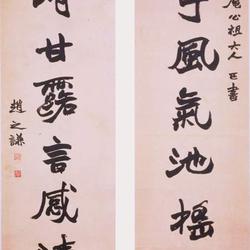 心祖大人正書
風氣池搖
甘露言感
趙之謙